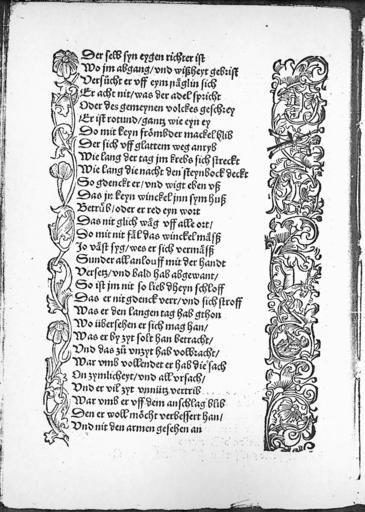 Der selb syn eygen richter ist
Wo jm abgang/vnd wißheyt gebrist
Versůcht er vff eym näglin sich
Er acht nit/was der adel spricht
Oder des gemeynen volckes geschrey
Er ist rotund/gantz wie eyn ey
Do mit keyn frömbder mackel blib
Der sich vff glattem weg anryb
Wie lang der tag jm krebs sich streckt
Wie lang die nacht den steynbock deckt
So gdenckt er/vnd wigt eben vß
Das jn keyn winckel jnn sym huß
Betrüb/oder er red eyn wort
Das nit glich wäg vff alle ort/
Do mit nit fäl das winckelmäß
Jo väst syg/wes er sich vermäß
Sunder all anlouff mit der handt
Versetz/vnd bald hab abgewant/
So ist jm nit so lieb dheyn schloff
Das er nit gdenck verr/vnd sich stroff
Was er den langen tag hab gthon
Wo übersehen er sich mag han/
Was er by zyt solt han betracht/
Vnd das zů vnzyt hab volbracht/
War vmb vollendet er hab die sach
On zymlicheyt/vnd all vrsach/
Vnd er vil zyt vnnütz vertrib
War vmb er vff dem anschlag blib
Den er wol möcht verbessert han/
Vnd nit den armen gesehen an